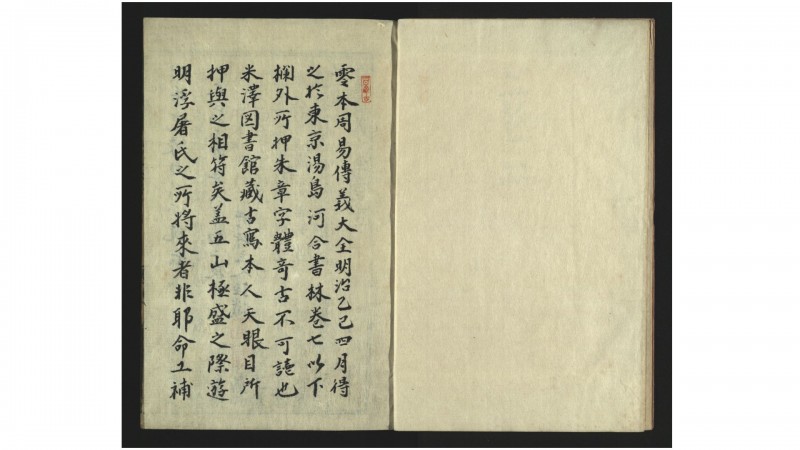 零本周易傳義大全明治乙巳四月得
之於東京湯島河合書林卷七以下
欄外所押朱章字體奇古不可讀也
米澤図書館藏古寫本人天眼目所
押與之相符矣盖五山極盛之際遊
明浮屠氏之所將來者非耶命工補